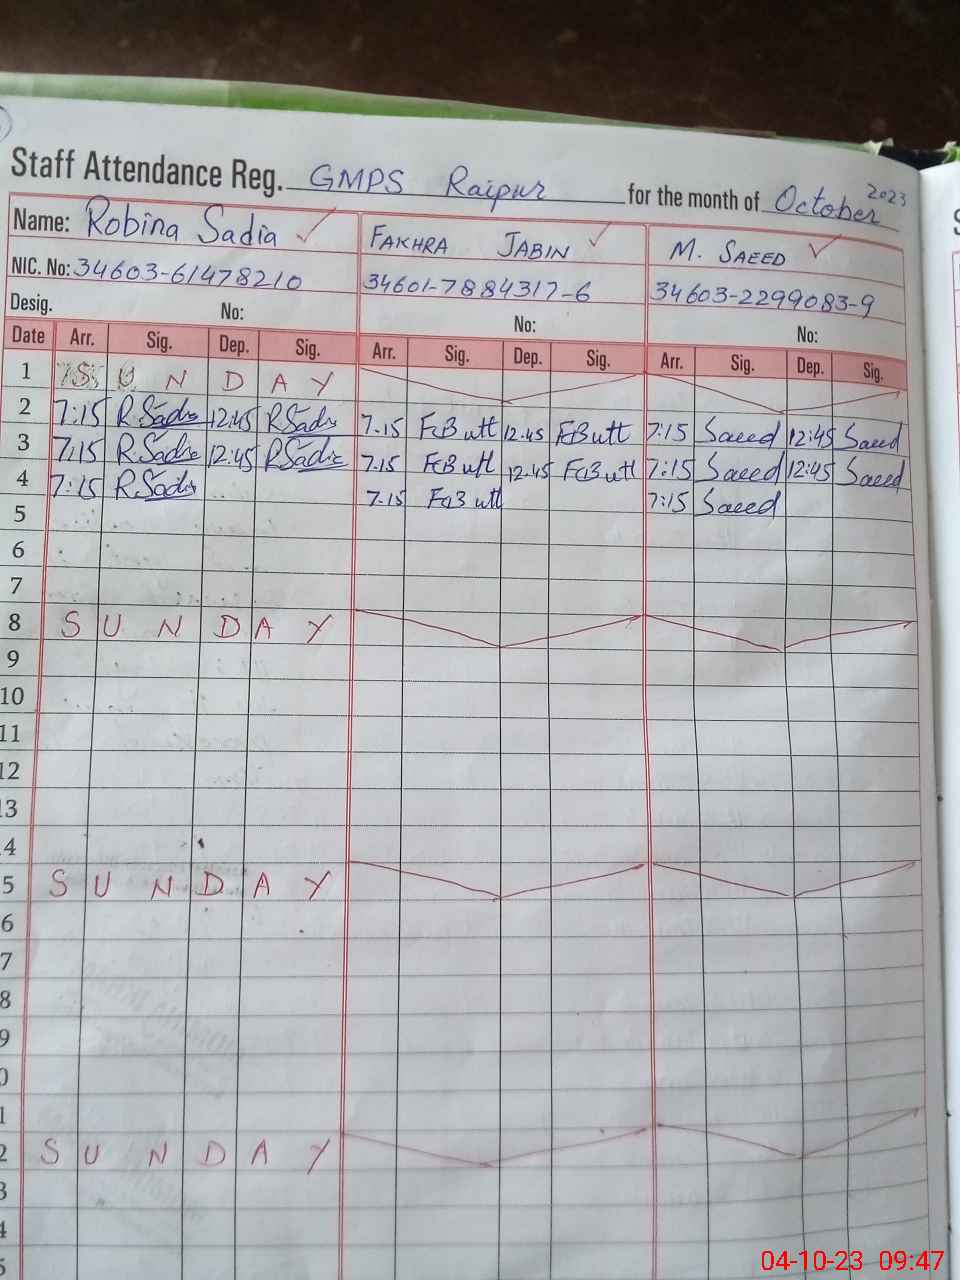 Staff Attendance Reg. GMPS Raipur for the month of October 2023
Name: Robina Sadia FAKHRA JABIN M. SAEED
NIC. No: 34603-61478210 34601-7884317-6 34603-2299083-9
Desig. No: No: No:
Date Arr. Sig. Dep. Sig. Arr. Sig. Dep. Sig. Arr. Sig. Dep. Sig.
1 SUNDAY
2 7:15 R Sadia 12:45 R Sadia 7.15 FaButt 12.45 FaButt 7:15 Saeed 12:45 Saeed
3 7:15 R Sadia 12:45 R Sadia 7.15 FaButt 12.45 FaButt 7:15 Saeed 12:45 Saeed
4 7:15 R Sadia 7.15 FaButt 7:15 Saeed
5
6
7
8 SUNDAY
9
10
11
12
13
4
5 SUNDAY
6
7
8
9
0
1
2 SUNDAY
3
4
5
04-10-23 09:47